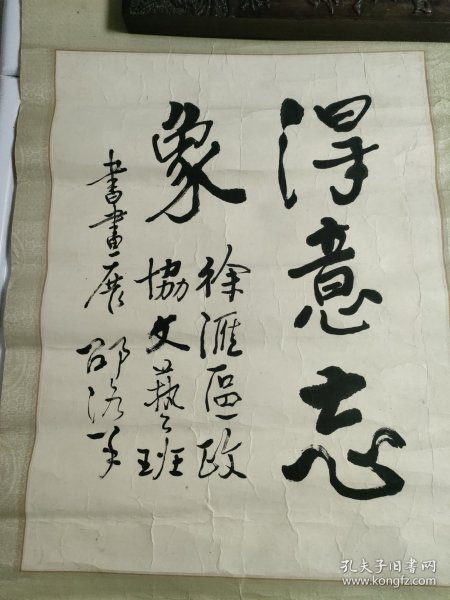 得意忘
象
徐滙區政
協文藝班
書畫展 邵洛羊
孔夫子旧书网
www.kongfz.com